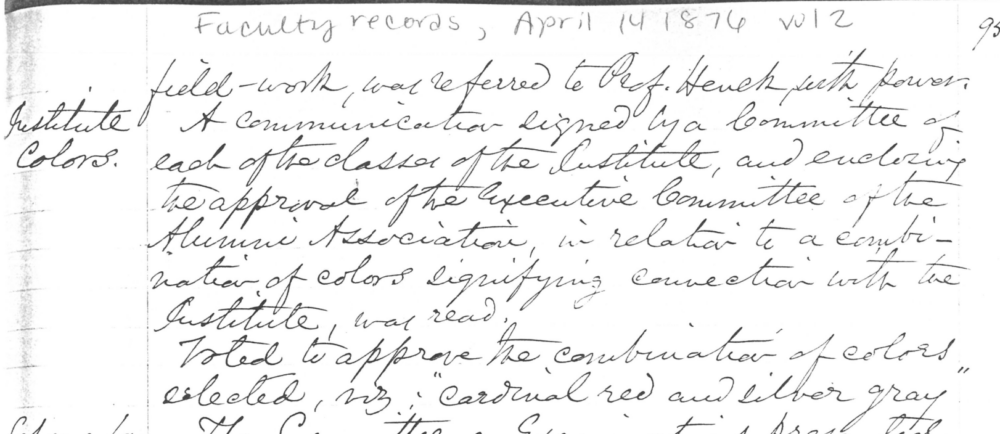 Faculty records, April 14 1876 vol 2
95
field-work, was referred to Prof. Henck, with power.
Institute
Colors.
A communication signed by a Committee of
each of the classes of the Institute, and enclosing
the approval of the Executive Committee of the
Alumni Association, in relation to a combi-
nation of colors signifying connection with the
Institute, was read.
Voted to approve the combination of colors
selected, viz: "cardinal red and silver gray"
The Committee